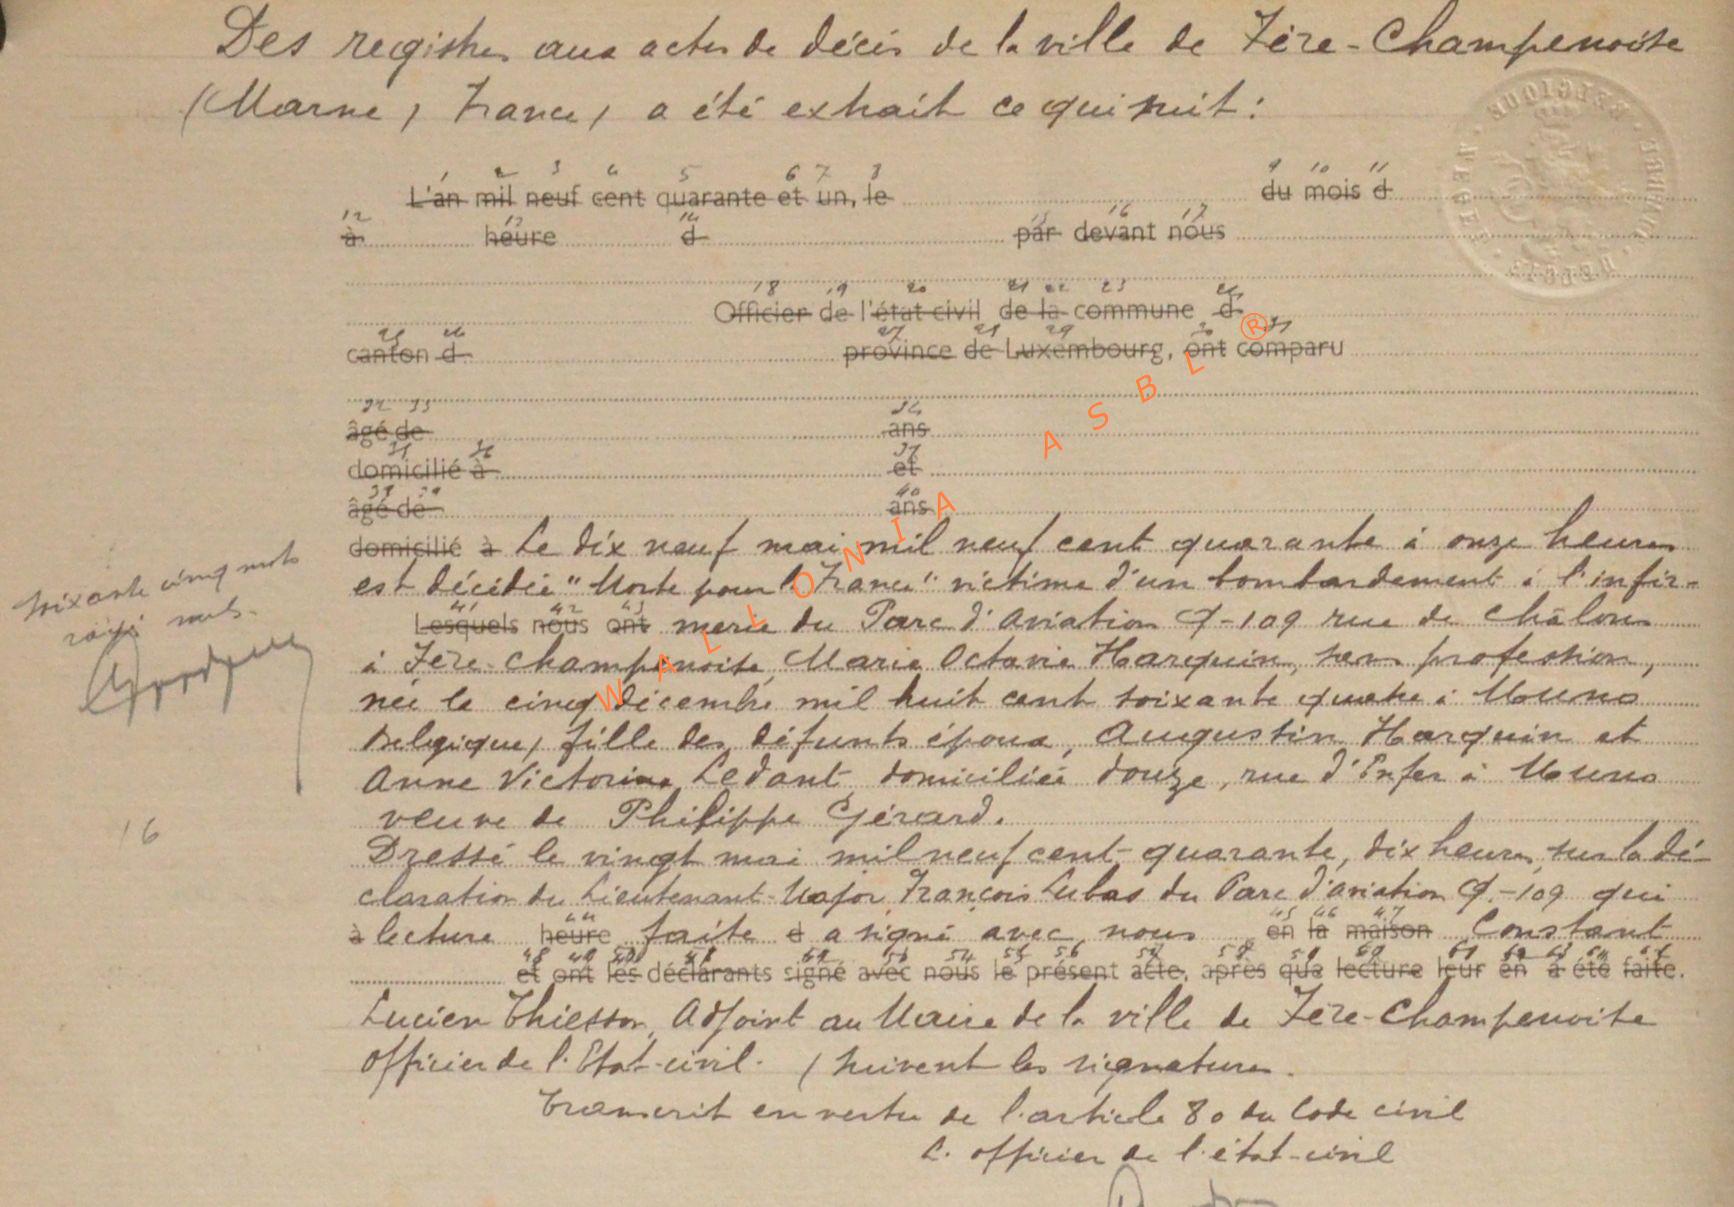 Des registres aux actes de décès de la ville de Fère-Champenoise
(Marne, France) a été extrait ce qui suit :
1 2 3 4 5 6 7 8 9 10 11
L'an mil neuf cent quarante et un, le du mois d
12 13 14 15 16 17
à heure d par devant nous
18 19 20 21 22 23 24
Officier de l'état civil de la commune d
25 26 27 28 29 30 31
canton d province de Luxembourg, ont comparu
32 33 34
âgé de ans
35 36 37
domicilié à et
38 39 40
âgé de ans
domicilié à Le dix neuf mai mil neuf cent quarante à onze heures
est décédée "Morte pour la France" victime d'un bombardement à l'infir-
41 42 43
Lesquels nous ont merie du Parc d'Aviation 9-109 rue de Châlons
à Fère-Champenoise, Marie Octavie Harquin, sans profession,
née le cinq décembre mil huit cent soixante quatre à Muno
Belgique, fille des défunts époux, Augustin Harquin et
Anne Victorine Ledant, domiciliée douze, rue d'Enfer à Muno
veuve de Philippe Gérard.
Dressé le vingt mai mil neuf cent quarante, dix heures, sur la dé-
claration du Lieutenant-Major François Lubas du Parc d'aviation 9-109 qui
à lecture heure faite d a signé avec nous en la maison Constant
et ont les déclarants signé avec nous le présent acte, après que lecture leur en a été faite.
Lucien Thiesson, Adjoint au Maire de la ville de Fère-Champenoise
Officier de l'Etat-civil. (suivent les signatures.
Transcrit en vertu de l'article 80 du Code civil
L'officier de l'état-civil
soixante cinq mots
rayés nuls.
16
WALLONIA ASBL ®